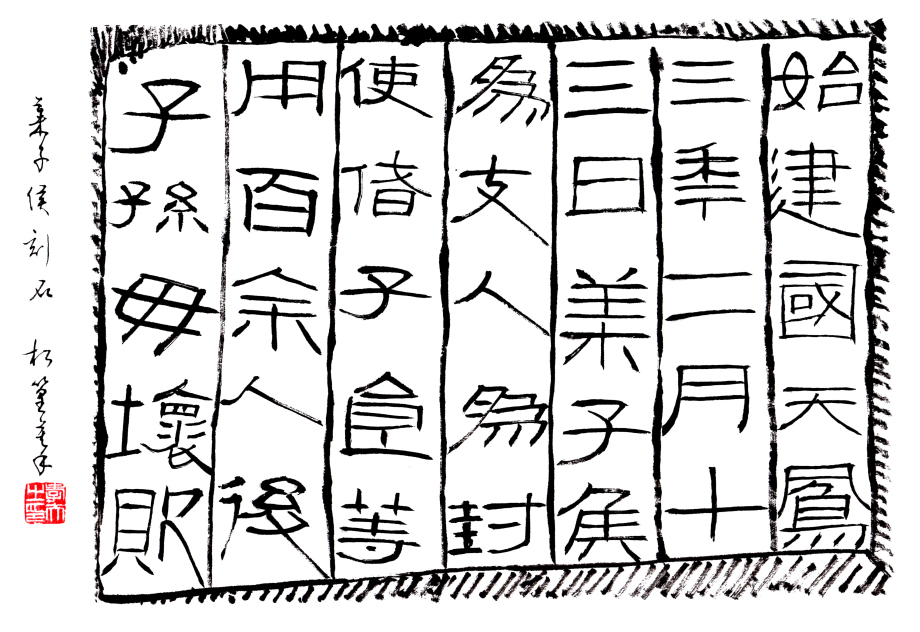 始建國天鳳
三年二月十
三日萊子侯
為支人為封
使偖子食等
用百余人後
子孫毋壞敗
萊子侯刻石 松篁